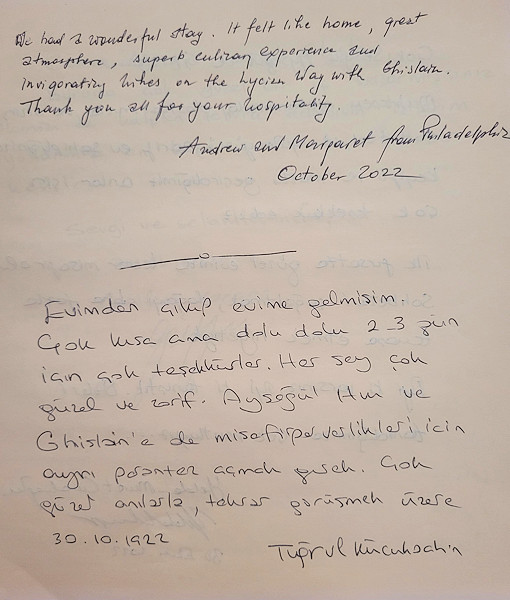 We had a wonderful stay. It felt like home, great
atmosphere, superb culinary experience and
invigorating hikes on the Lycian Way with Ghislain.
Thank you all for your hospitality.
Andrew and Margaret from Philadelphia
October 2022
Evimden çıkıp evime gelmişim.
Çok kısa ama dolu dolu 2-3 gün
için çok teşekkürler. Her şey çok
güzel ve zarif. Ayşegül Hnm ve
Ghislain'e de misafirperverlikleri için
ayrı parantez açmak gerek. Çok
güzel anılarla, tekrar görüşmek üzere
30.10.1922
Tuğrul Küçükşahin